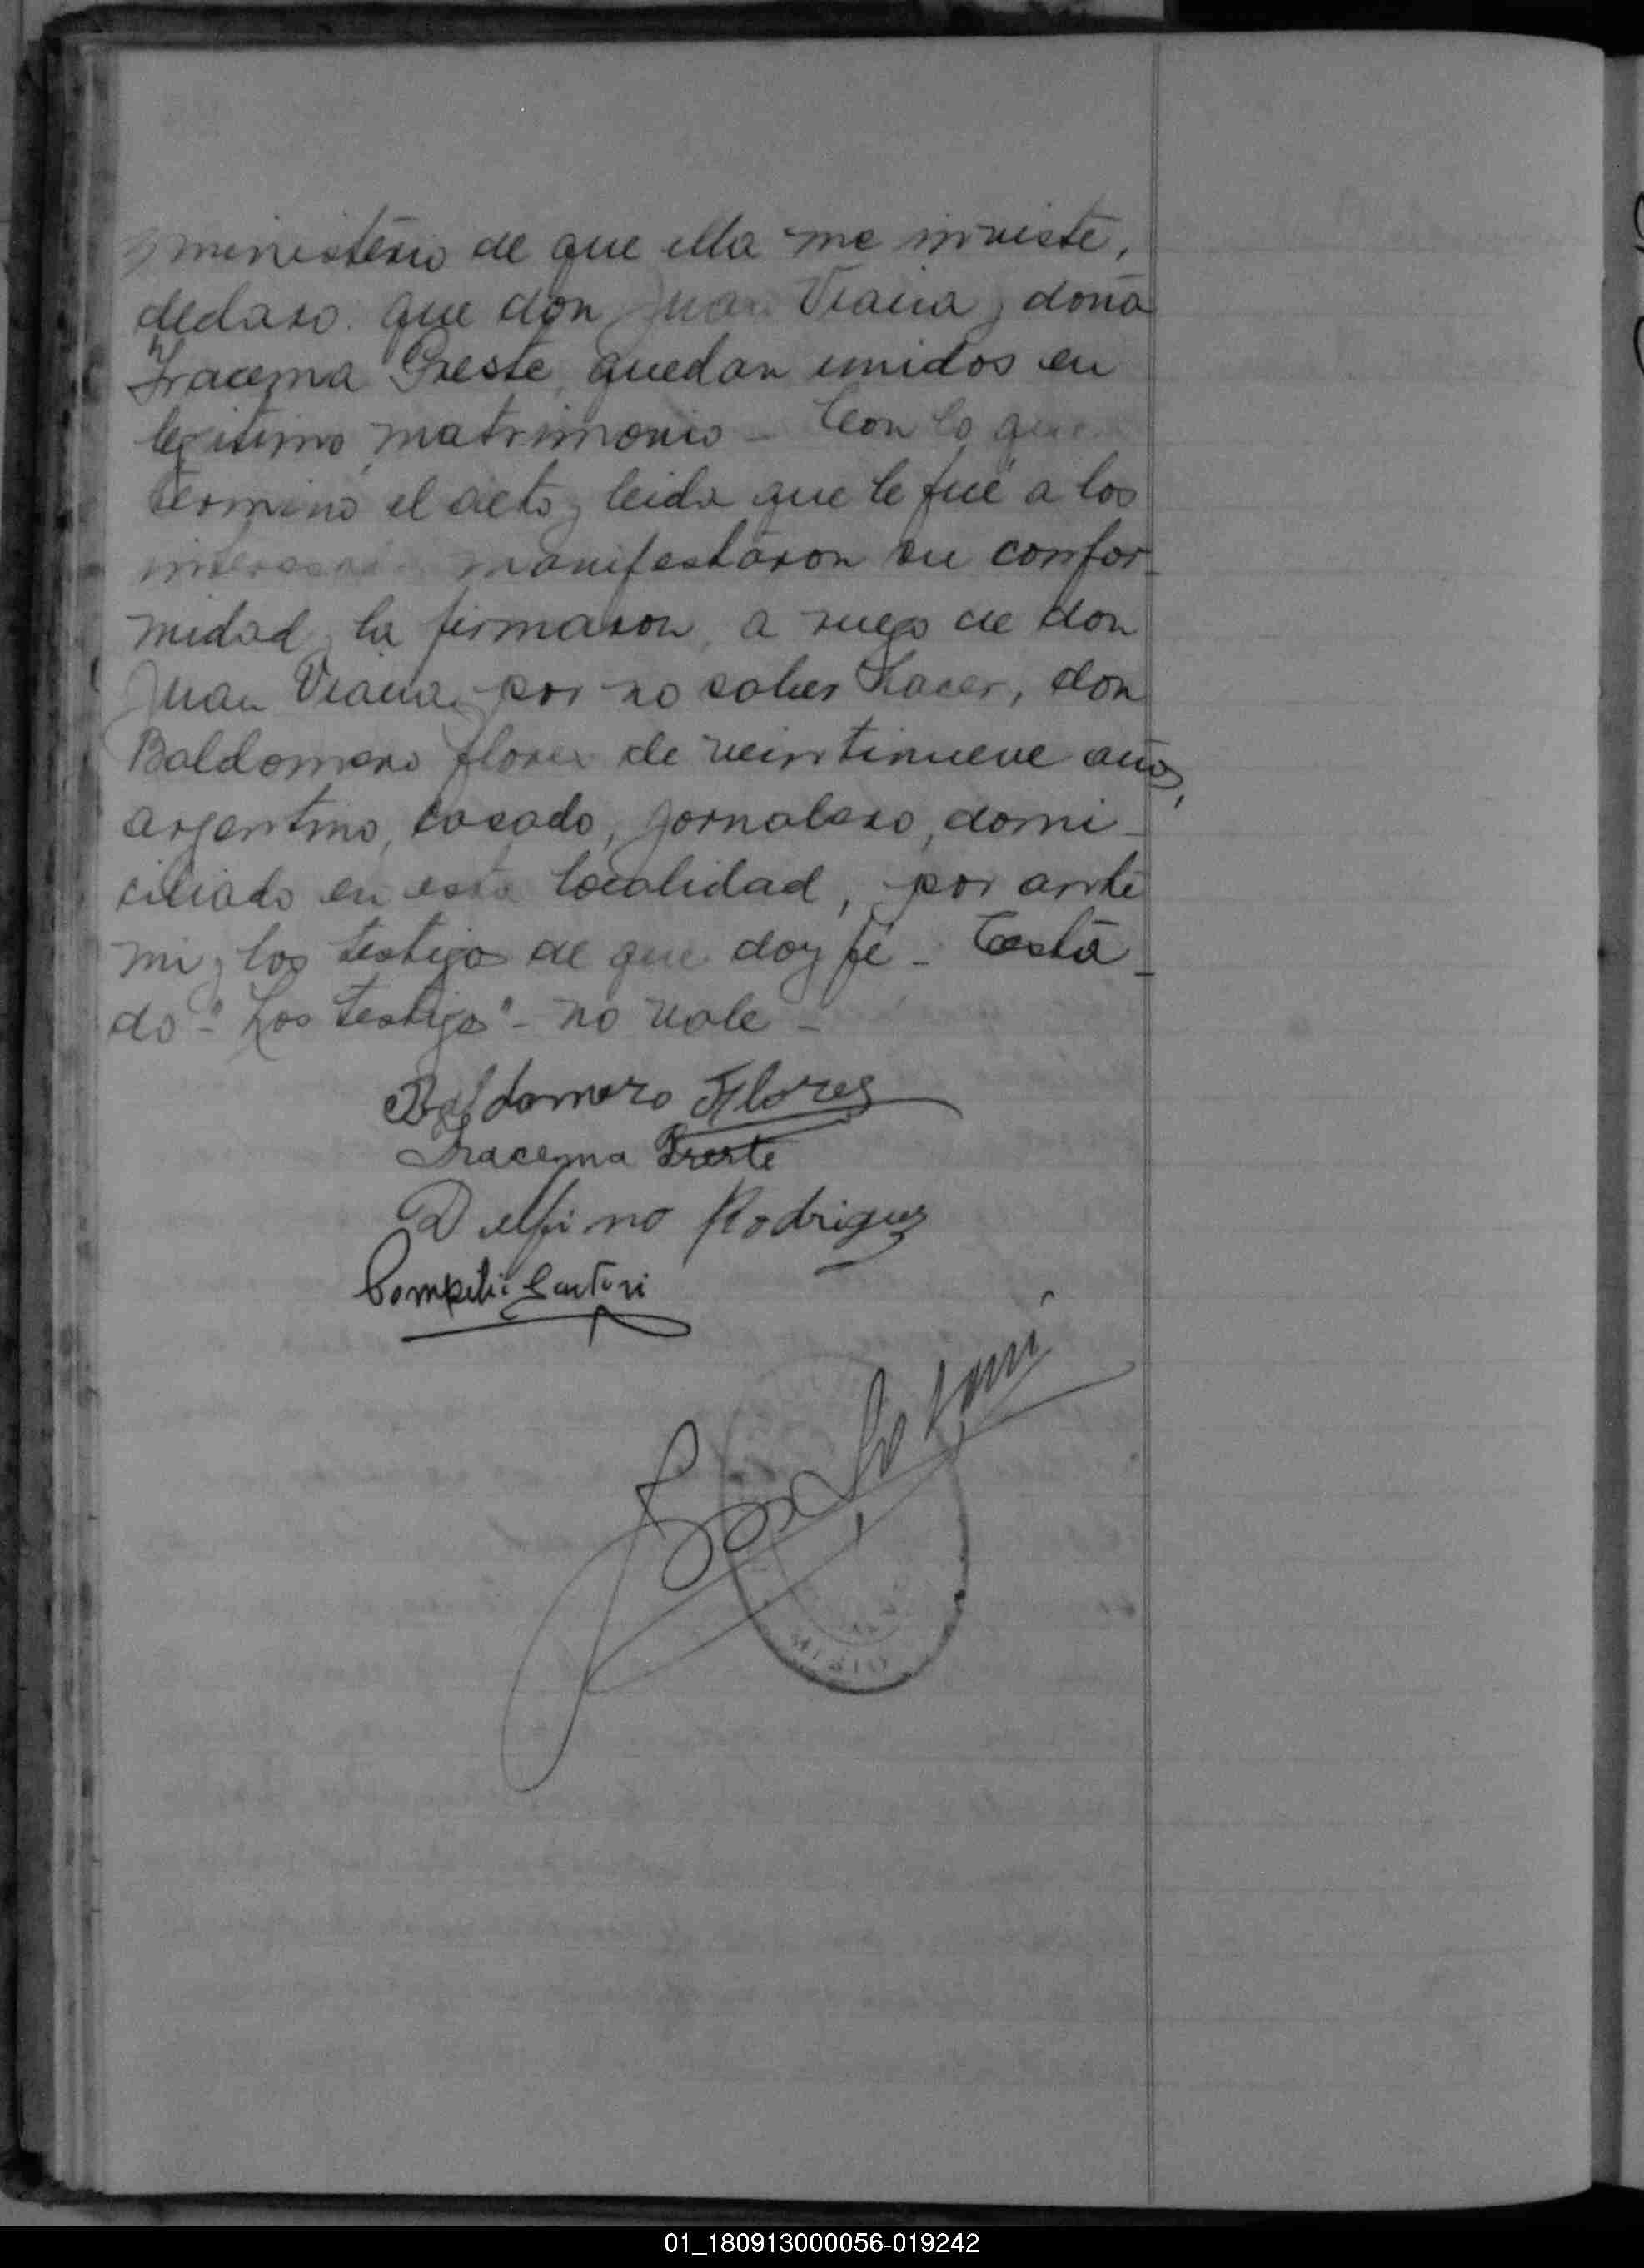 y ministerio de que ella me inviste,
declaro que don Juan Viana y doña
Iracema Preste, quedan unidos en
legitimo matrimonio - Con lo que
terminó el acto y leida que le fué a los
manifestaron su confor-
midad, la firmaron, a ruego de don
Juan Viana por no saber hacer, don
Baldomero Flores de veintinueve años,
argentino, casado, jornalero, domi-
ciliado en esta localidad, por ante
mi y los testigos de que doy fé - Testa-
do - "Los testigos" - no vale -
Baldomero Flores
Iracema Preste
Delfino Rodriguez
Pompilio Sartori
01_180913000056-019242